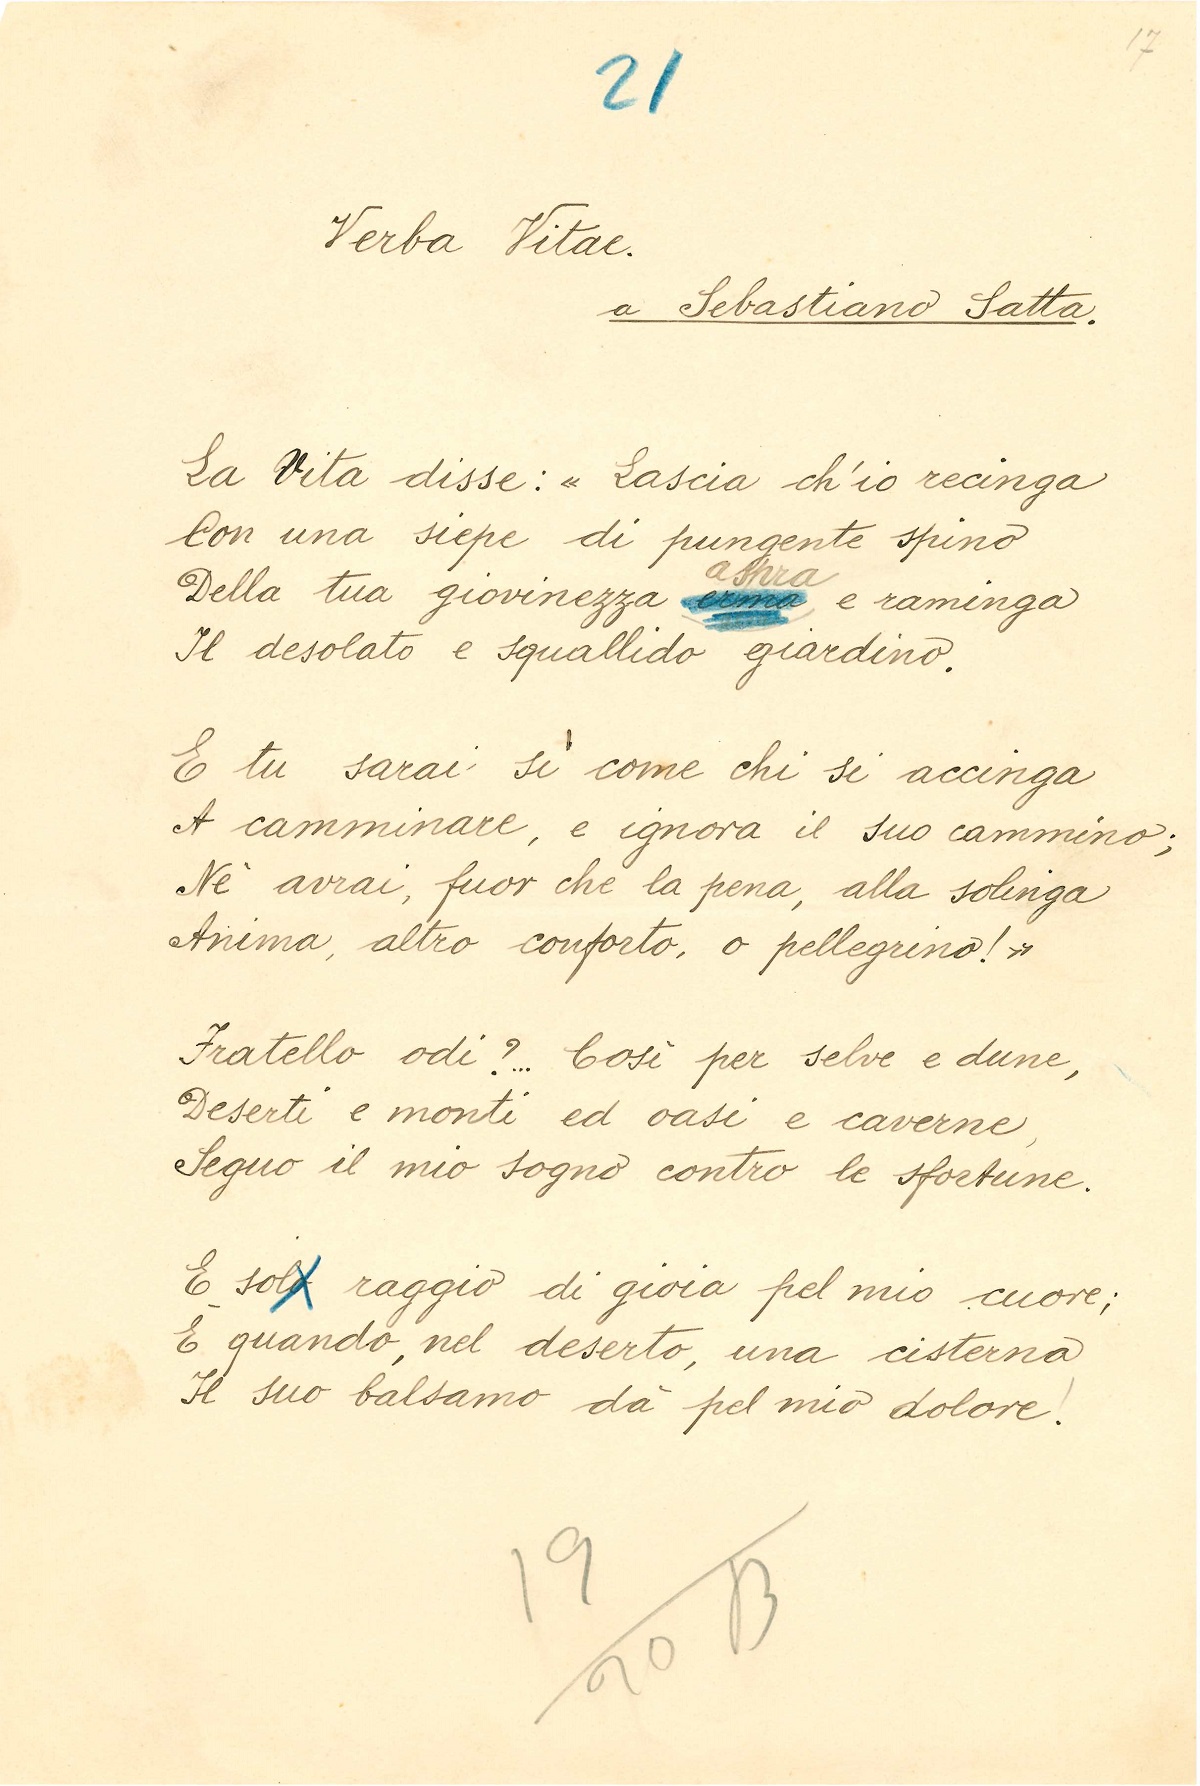 17
21
Verba Vitae.
a Sebastiano Satta.
La Vita disse: « Lascia ch'io recinga
Con una siepe di pungente spino
aspra
Della tua giovinezza erma e raminga
Il desolato e squallido giardino.
E tu sarai sì come chi si accinga
A camminare, e ignora il suo cammino;
Nè avrai, fuor che la pena, alla solinga
Anima, altro conforto, o pellegrino! »
Fratello odi?... Così per selve e dune,
Deserti e monti ed oasi e caverne,
Seguo il mio sogno contro le sfortune.
E solo raggio di gioia pel mio cuore;
È quando, nel deserto, una cisterna
Il suo balsamo dà pel mio dolore!
19
20 B